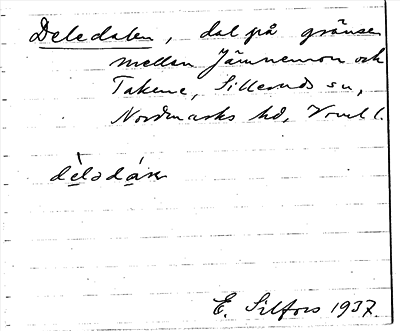 Deledalen, dal på gränsen
mellan Jämnemon och
Takene, Silleruds sn,
Nordmarks hd, Vrml l.
E. Silfors 1937.